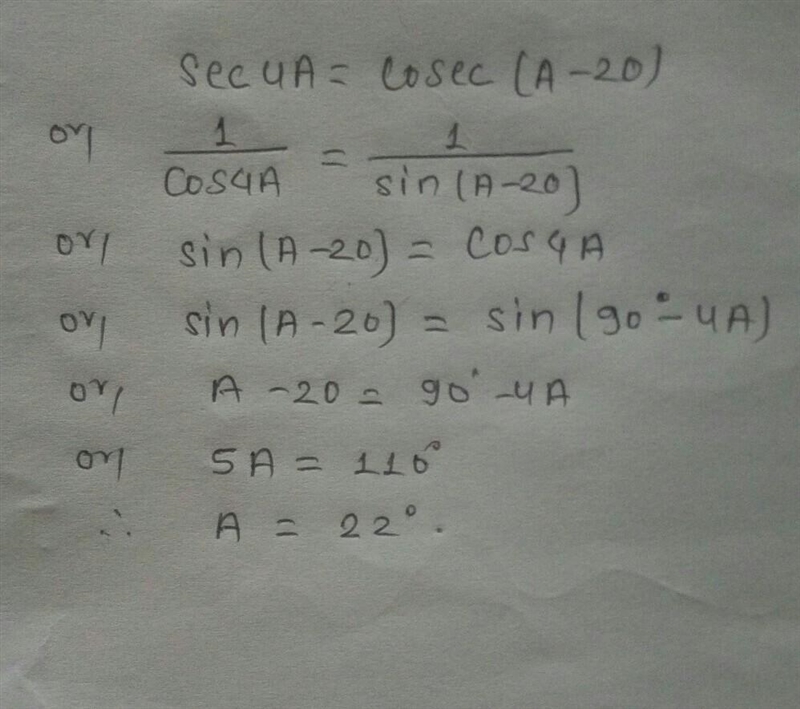 sec4A = cosec (A-20)
or, 1/cos4A = 1/sin(A-20)
or, sin(A-20) = cos4A
or, sin(A-20) = sin(90°-4A)
or, A-20 = 90°-4A
or, 5A = 110°
∴ A = 22°.